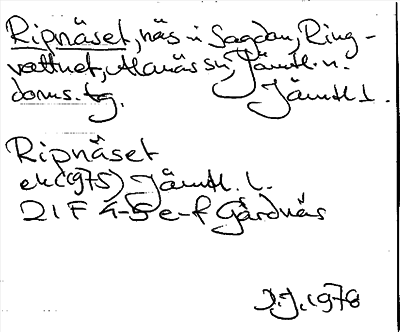 Ripnäset, näs i Sagdan, Ring-
vattnet, Alanäs sn, Jämtl. n.
doms. tg. Jämtl l.
Ripnäset
ek (1975) Jämtl. L.
21 F 4-5 e-f Gårdnäs
J.J. 1978